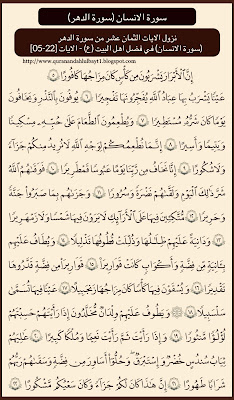 سورة الانسان (سورة الدهر)
نزول الآيات الثمان عشر من سورة الدهر
(سورة الانسان) في فضل اهل البيت (ع) - الايات [22-05]
http://www.quranandahlulbayt1.blogspot.com
إِنَّ ٱلْأَبْرَارَ يَشْرَبُونَ مِن كَأْسٍ كَانَ مِزَاجُهَا كَافُورًا ٥
عَيْنًا يَشْرَبُ بِهَا عِبَادُ ٱللَّهِ يُفَجِّرُونَهَا تَفْجِيرًا ٦ يُوفُونَ بِٱلنَّذْرِ وَيَخَافُونَ
يَوْمًا كَانَ شَرُّهُۥ مُسْتَطِيرًا ٧ وَيُطْعِمُونَ ٱلطَّعَامَ عَلَىٰ حُبِّهِۦ مِسْكِينًا
وَيَتِيمًا وَأَسِيرًا ٨ إِنَّمَا نُطْعِمُكُمْ لِوَجْهِ ٱللَّهِ لَا نُرِيدُ مِنكُمْ جَزَآءً
وَلَا شُكُورًا ٩ إِنَّا نَخَافُ مِن رَّبِّنَا يَوْمًا عَبُوسًا قَمْطَرِيرًا ١٠ فَوَقَىٰهُمُ ٱللَّهُ
شَرَّ ذَٰلِكَ ٱلْيَوْمِ وَلَقَّىٰهُمْ نَضْرَةً وَسُرُورًا ١١ وَجَزَىٰهُم بِمَا صَبَرُوا۟ جَنَّةً
وَحَرِيرًا ١٢ مُّتَّكِـِٔينَ فِيهَا عَلَى ٱلْأَرَآئِكِ لَا يَرَوْنَ فِيهَا شَمْسًا وَلَا زَمْهَرِيرًا
١٣ وَدَانِيَةً عَلَيْهِمْ ظِلَٰلُهَا وَذُلِّلَتْ قُطُوفُهَا تَذْلِيلًا ١٤ وَيُطَافُ عَلَيْهِم
بِـَٔانِيَةٍ مِّن فِضَّةٍ وَأَكْوَابٍ كَانَتْ قَوَارِيرَا۠ ١٥ قَوَارِيرَا۟ مِن فِضَّةٍ قَدَّرُوهَا
تَقْدِيرًا ١٦ وَيُسْقَوْنَ فِيهَا كَأْسًا كَانَ مِزَاجُهَا زَنجَبِيلًا ١٧ عَيْنًا فِيهَا تُسَمَّىٰ
سَلْسَبِيلًا ١٨ وَيَطُوفُ عَلَيْهِمْ وِلْدَٰنٌ مُّخَلَّدُونَ إِذَا رَأَيْتَهُمْ حَسِبْتَهُمْ
لُؤْلُؤًا مَّنثُورًا ١٩ وَإِذَا رَأَيْتَ ثَمَّ رَأَيْتَ نَعِيمًا وَمُلْكًا كَبِيرًا ٢٠ عَٰلِيَهُمْ
ثِيَابُ سُندُسٍ خُضْرٌ وَإِسْتَبْرَقٌ وَحُلُّوٓا۟ أَسَاوِرَ مِن فِضَّةٍ وَسَقَىٰهُمْ رَبُّهُمْ
شَرَابًا طَهُورًا ٢١ إِنَّ هَٰذَا كَانَ لَكُمْ جَزَآءً وَكَانَ سَعْيُكُم مَّشْكُورًا ٢٢